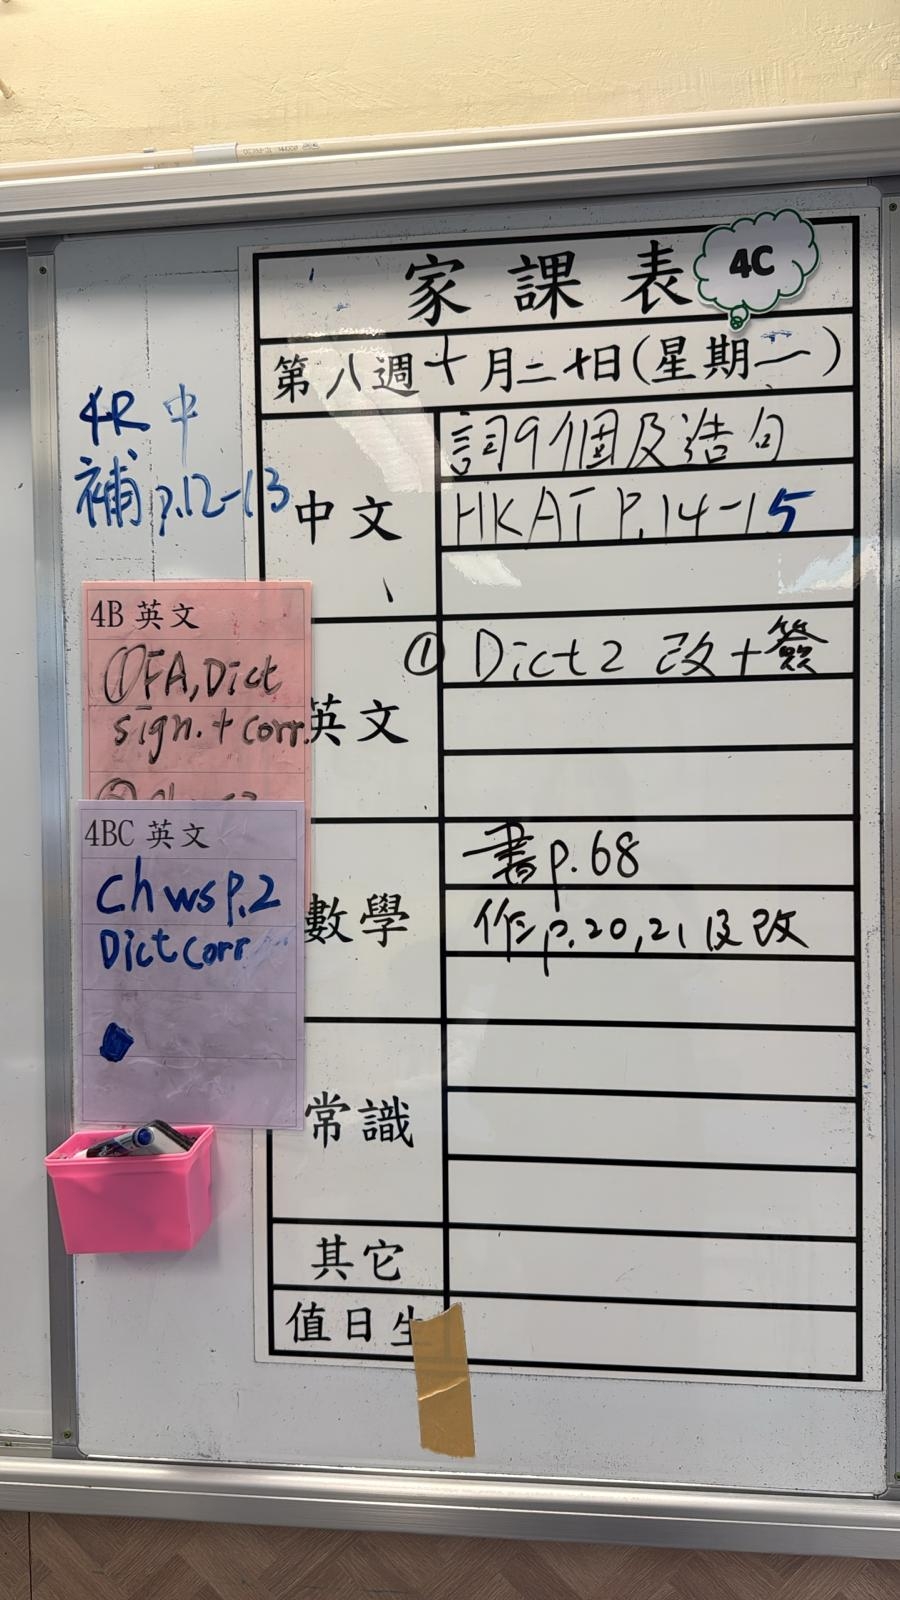 家課表
4C
第八週十月二十日(星期一)
4R 中
補 p.12-13
中文
詞9個及造句
HKAT P.14-15
4B 英文
①FA, Dict
sign. + corr.
4BC 英文
Ch ws p.2
Dict corr
英文
① Dict 2 改+簽
數學
書p.68
作p.20,21及改
常識
其它
值日生